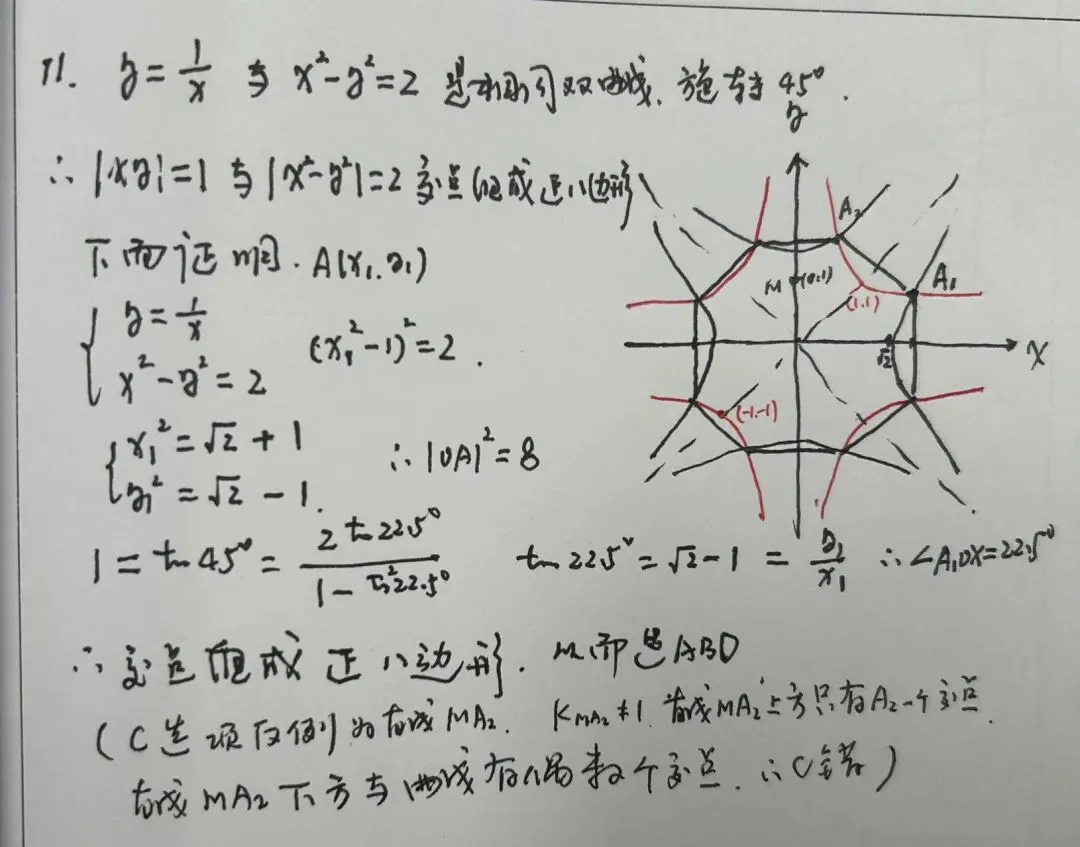 11. y = 1/x 与 x²-y²=2 是相同双曲线. 旋转45°.
∴ |xy|=1 与 |x²-y²|=2 交点组成正八边形
下面证明. A(x₁, y₁)
{ y = 1/x
x²-y²=2
(x₁²-1)²=2.
{ x₁² = √2 + 1
y₁² = √2 - 1.
∴ |OA|²=8
1 = tan45° = 2tan22.5° / 1 - tan²22.5°
tan22.5° = √2-1 = y₁/x₁ ∴ ∠A₁OX=22.5°
∴ 交点组成正八边形. 从而选ABD
(C选项反例为直线MA₂. K_MA₂≠1. 直线MA₂上方只有A₂一个交点.
直线MA₂下方与曲线有偶数个交点. ∴C错)
y
A₂
A₁
M (0,1)
(1,1)
√2
x
(-1,-1)